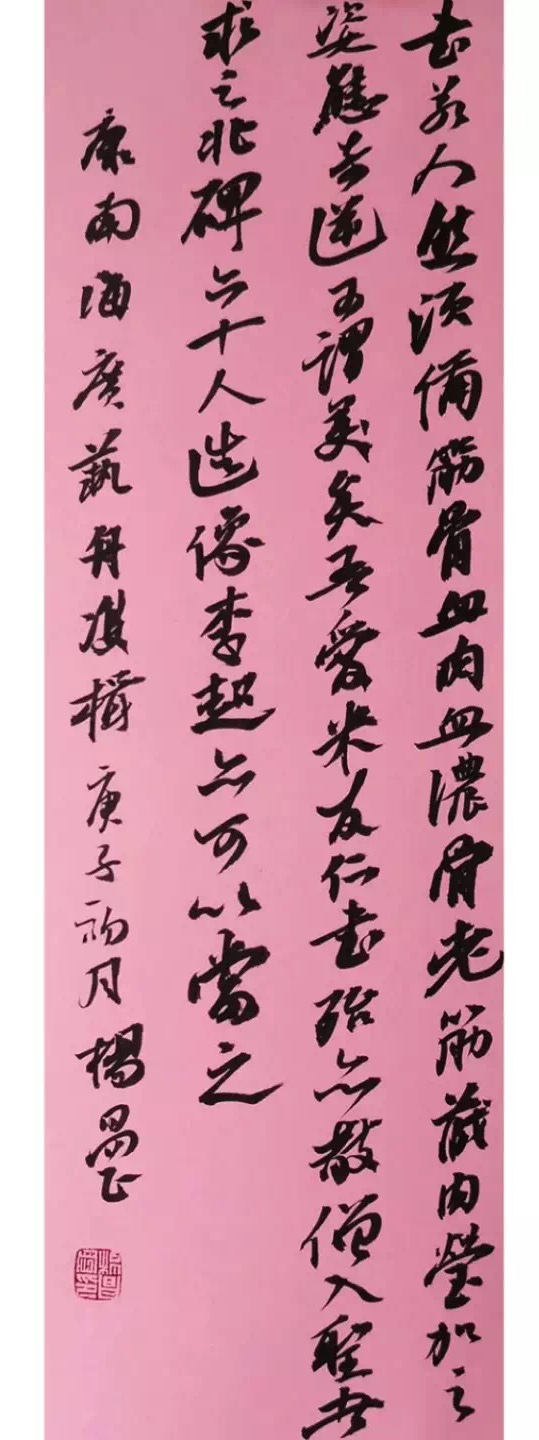 書若人然須備筋骨血肉血濃骨老筋藏肉瑩加之
姿態奇逸可謂美矣吾愛米友仁書殆亦散僧入聖者
求之北碑六十人造像李超亦可以當之
康南海廣藝舟雙楫 庚子初月 楊